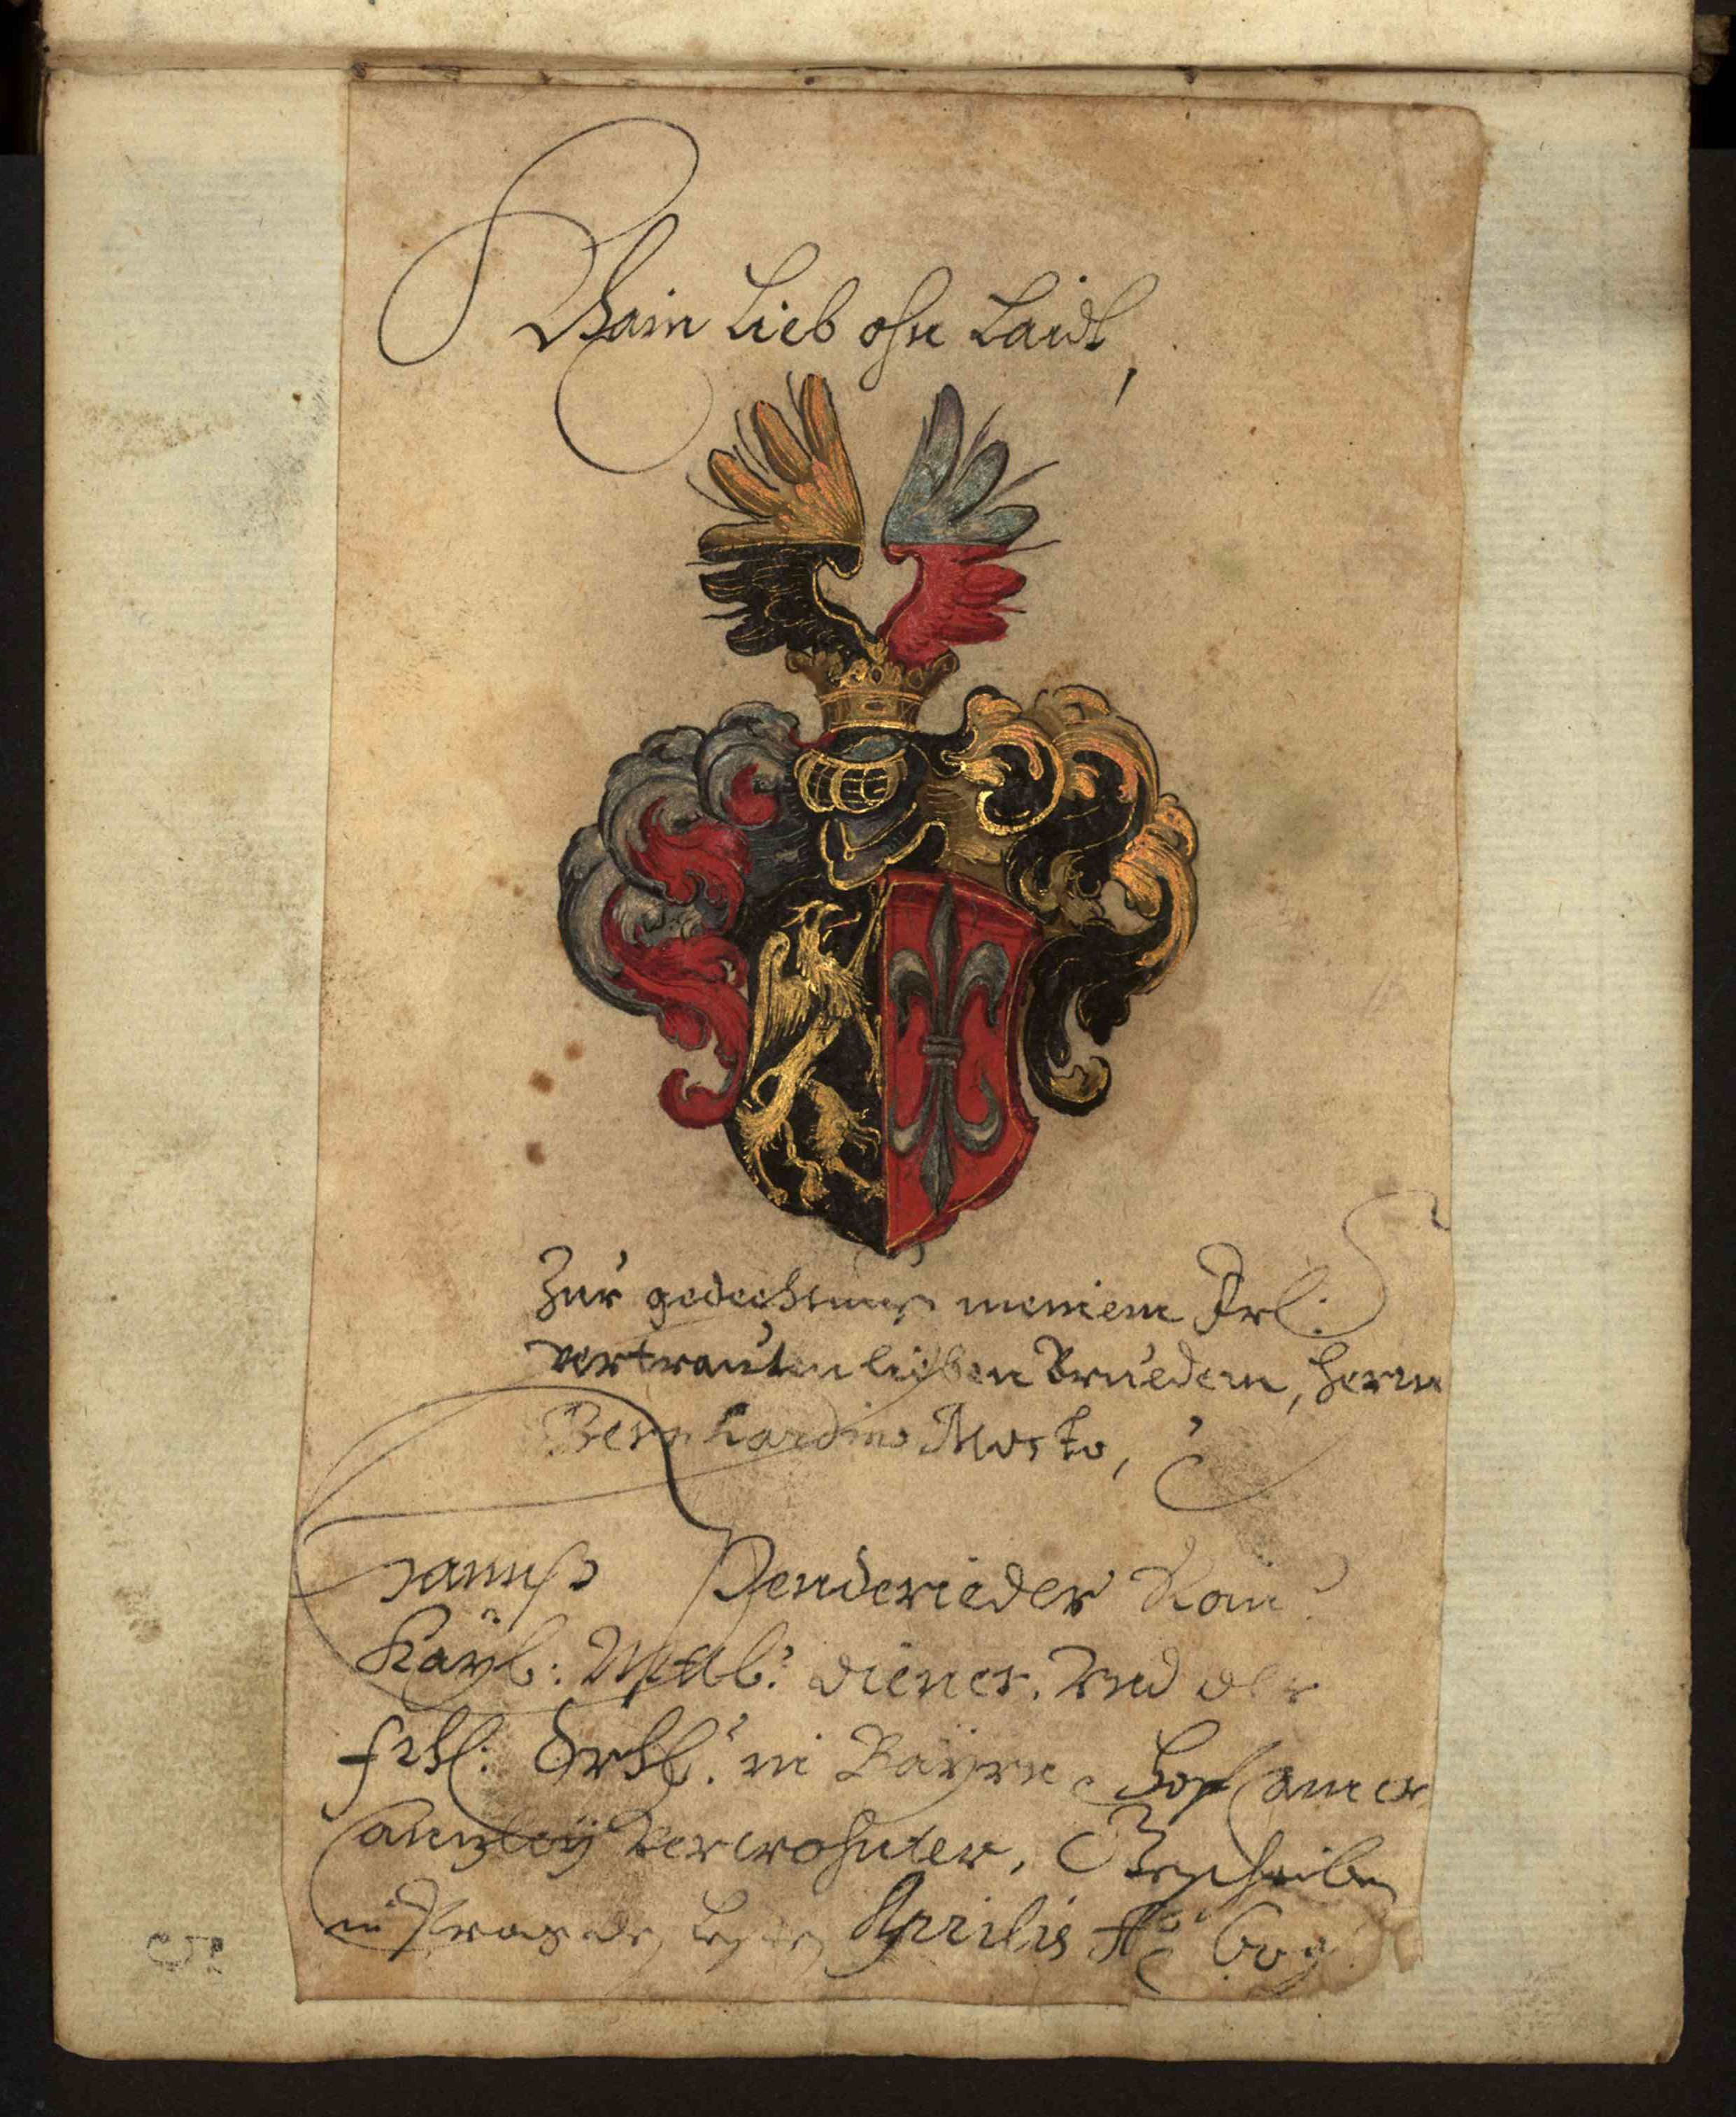 Khain Lieb ohn Laidt,
Zur gedechtnus meinem
vertrauten lieben Bruedern, Herrn
Bernhardino Mosto,
Hannß Penderieder Röm:
Kayl: Mtt: diener. Und der
frl: Drl: in Bayrn. Hof Camer
Canzley verwohnter. Geschriben
in Prag den lesten Aprilis Aº 609